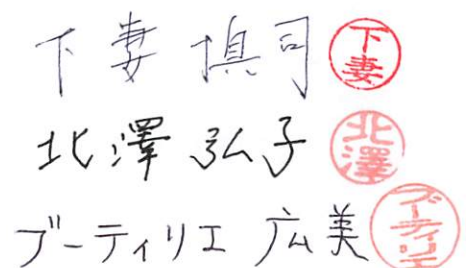 下妻 慎司 下妻
北澤 弘子 北澤
ブーティリエ 広美 ブーティリエ